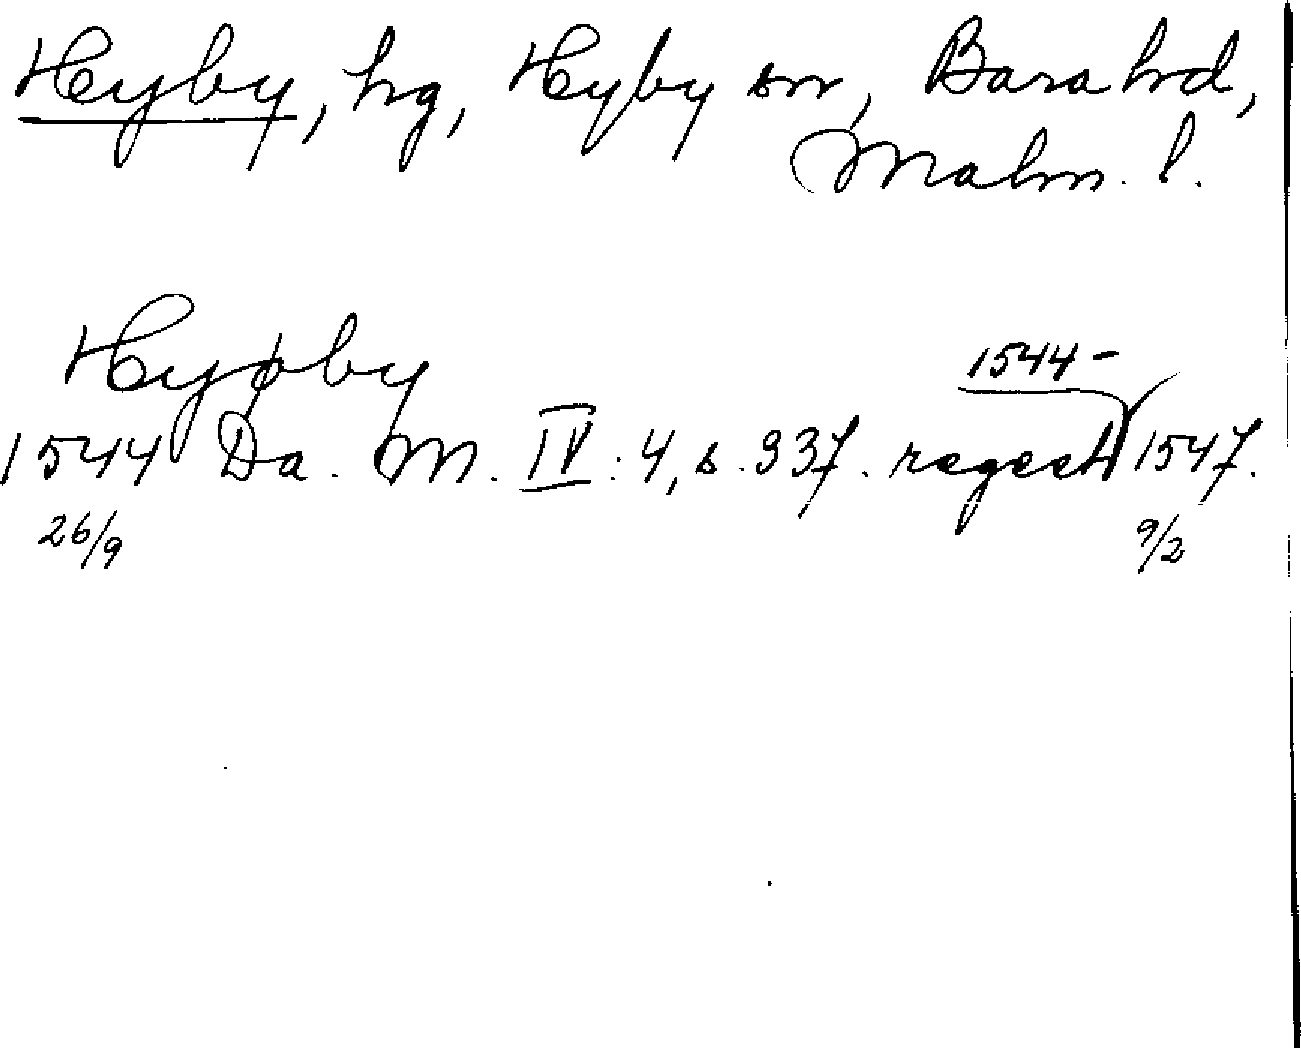 Hyby, hg, Hyby sn, Bara hd,
Malm. l.
Hyøby
1544 –
1544 Da. M. IV: 4, s. 337. regest 1547.
26/9 9/2